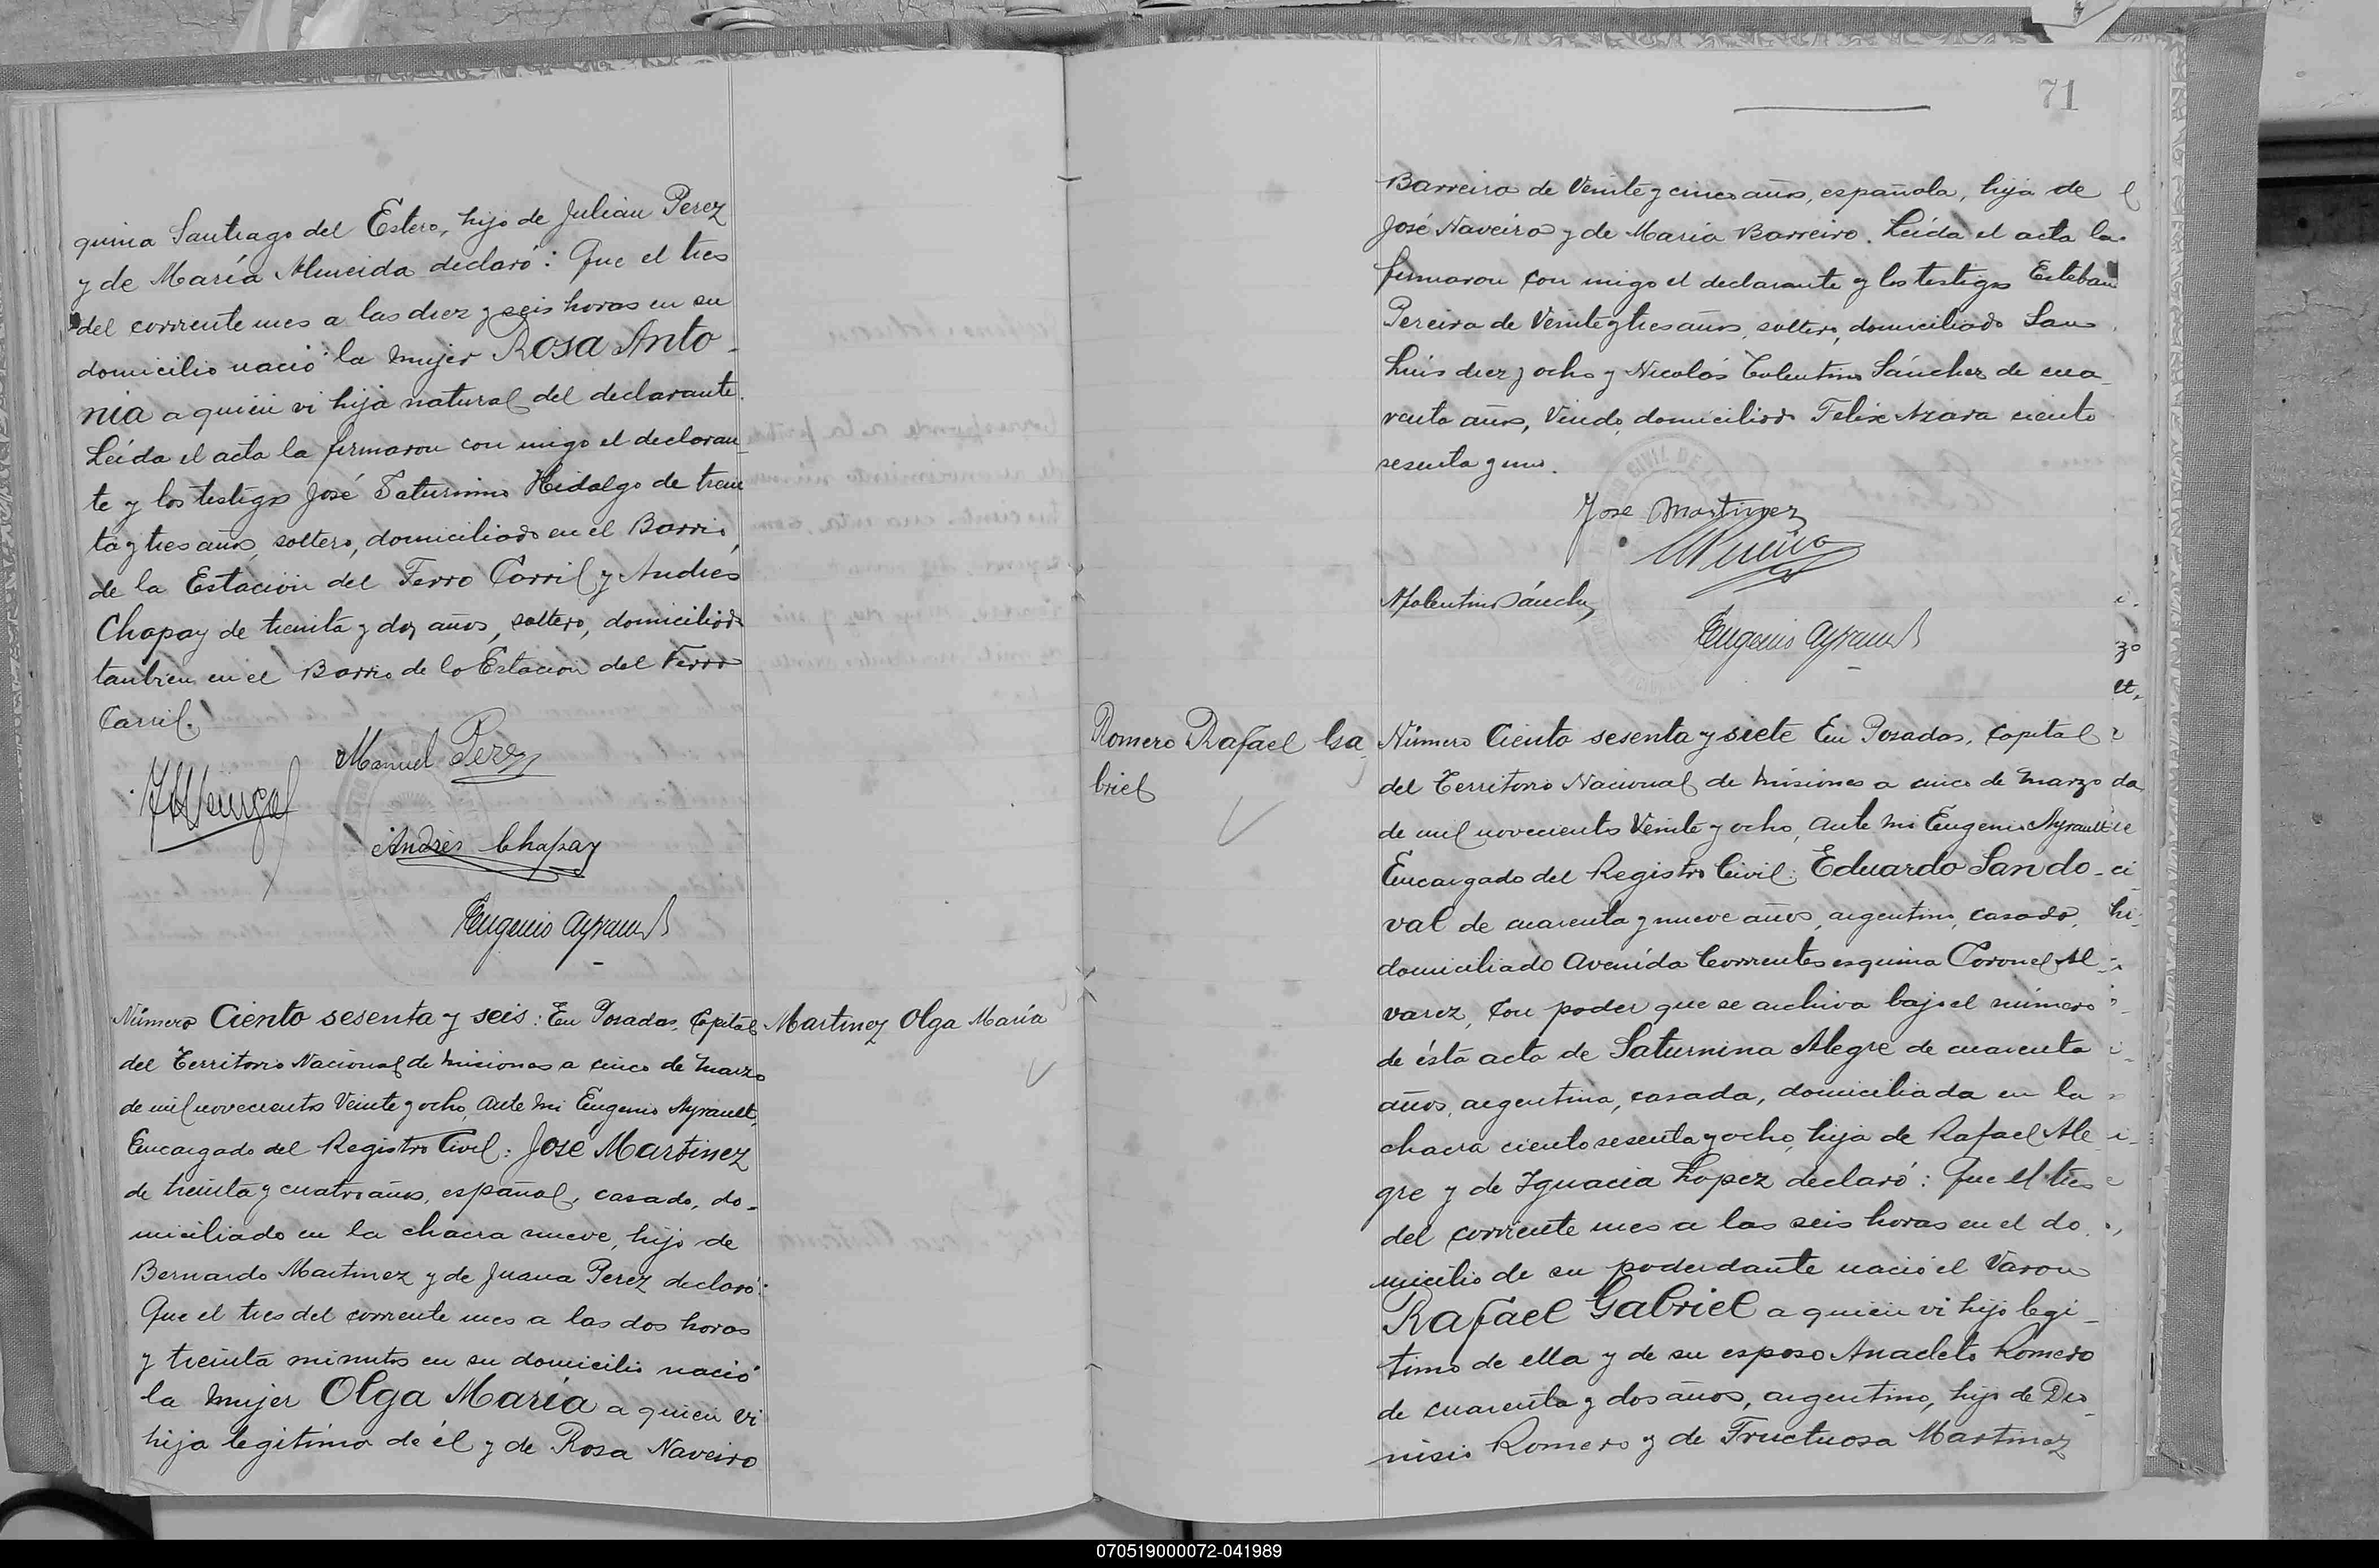 quina Santiago del Estero, hijo de Julián Perez
y de María Almeida declaró: Que el tres
del corriente mes a las diez y seis horas en su
domicilio nació la mujer Rosa Anto-
nia a quien vi hija natural del declarante.
Leída el acta la firmaron con migo el declaran
te y los testigos José Saturnino Hidalgo de trein
ta y tres años, soltero, domiciliado en el Barrio
de la Estación del Ferro Carril y Andrés
Chapay de treinta y dos años, soltero, domiciliado
tanbien en el Barrio de la Estación del Ferro
Carril.
Manuel Perez
Andrés Chapay
Eugenio Ayrault
Número Ciento sesenta y seis: En Posadas, Capital
Martinez Olga María
del Territorio Nacional de Misiones a cinco de Marzo
de mil novecientos Veinte y ocho, ante mi Eugenio Ayrault,
Encargado del Registro Civil: José Martinez
de treinta y cuatro años, español, casado, do-
miciliado en la chacra nueve, hijo de
Bernardo Martinez y de Juana Perez declaró:
Que el tres del corriente mes a las dos horas
y treinta minutos en su domicilio nació
la mujer Olga María a quien vi
hija legítima de él y de Rosa Naveiro
71
Barreiro de Veinte y cinco años, española, hija de
José Naveiro y de María Barreiro. Leída el acta la
firmaron con migo el declarante y los testigos Esteban
Pereira de Veinte y tres años, soltero, domiciliado San
Luis diez y ocho y Nicolás Tolentino Sánchez de cua-
renta años, Viudo, domiciliado Felix Azara ciento
sesenta y uno.
Jose Martinez
NTolentino Sánchez
Eugenio Ayrault
Romero Rafael Ga
briel
Número Ciento sesenta y siete En Posadas, Capital
del Territorio Nacional de Misiones a cinco de Marzo
de mil novecientos Veinte y ocho, ante mi Eugenio Ayrault
Encargado del Registro Civil: Eduardo Sando-
val de cuarenta y nueve años, argentino, casado,
domiciliado Avenida Corrientes esquina Coronel Al-
varez, con poder que se archiva bajo el número
de ésta acta de Saturnina Alegre de cuarenta
años, argentina, casada, domiciliada en la
chacra ciento sesenta y ocho, hija de Rafael Ale
gre y de Ignacia Lopez declaró: Que el tres
del corriente mes a las seis horas en el do
micilio de su poderdante nació el Varon
Rafael Gabriel a quien vi hijo legi-
timo de ella y de su esposo Anacleto Romero
de cuarenta y dos años, argentino, hijo de Dio-
nisio Romero y de Fructuosa Martinez
070519000072-041989